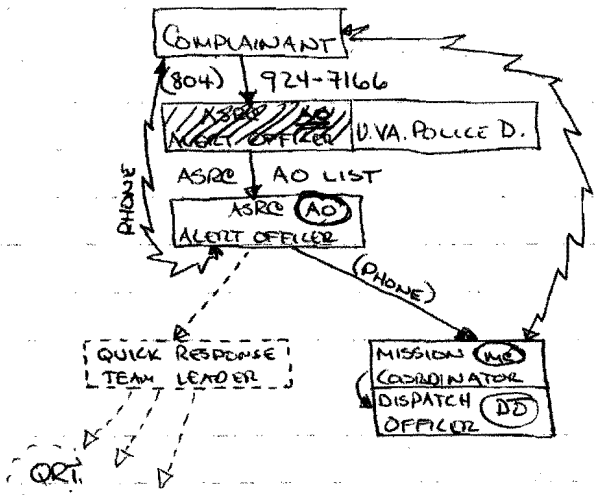 COMPLAINANT
(804) 924-7166
ASRC AO
ALERT OFFICER
U.VA. POLICE D.
ASRC AO LIST
PHONE
ASRC AO
ALERT OFFICER
(PHONE)
QUICK RESPONSE
TEAM LEADER
MISSION MC
COORDINATOR
DISPATCH DO
OFFICER
QRT